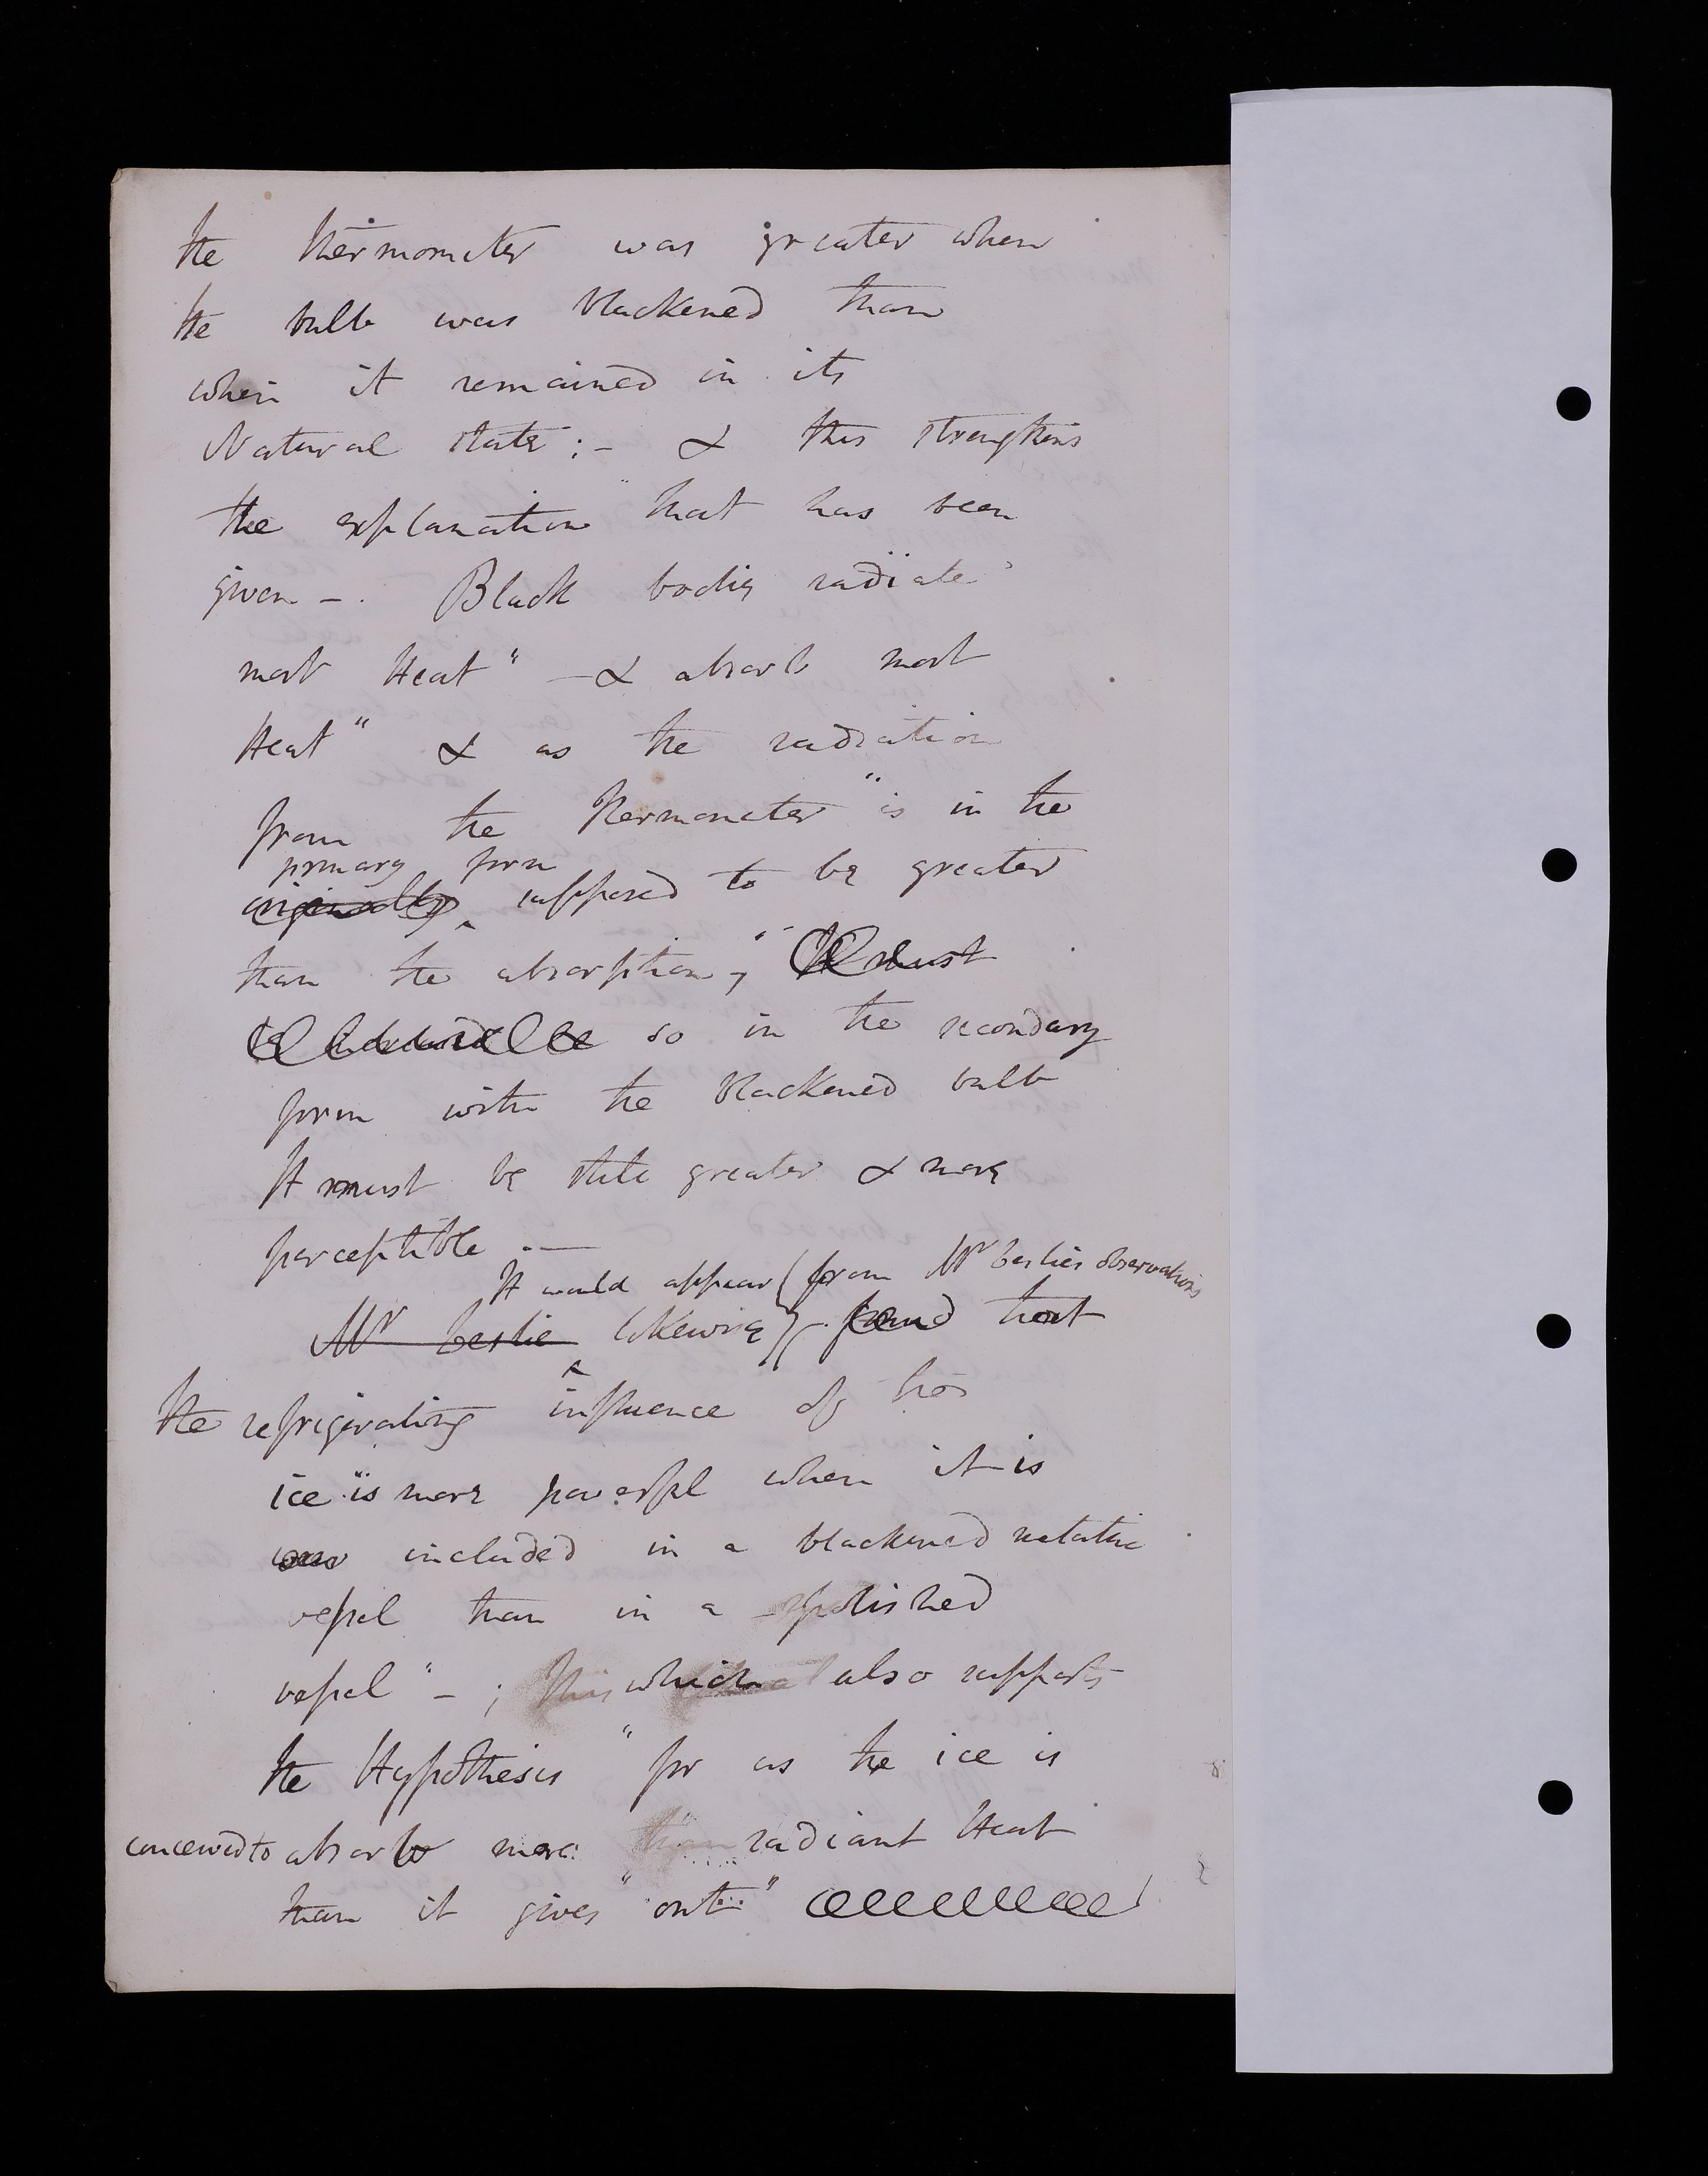 the thermometer was greater when
the bulb was blackened than
when it remained in its
Natural state; - & this strengthens
the explanation" that has been
given -. Black bodies radiate
most Heat" - & absorb most
Heat" & as the radiation
from the thermometer" is in the
primary form
originally supposed to be greater
than the absorption, " It must
so in the secondary
form with the blackened bulb
It must be still greater & more
perceptible. —
It would appear (from Mr Leslies observations
Mr Leslie likewise) found that
the refrigerating influence of
ice" is more powerful when it is
was included in a blackened metallic
vessel than in a polished
vessel" - ; this which also supports
the Hypothesis " for as the ice is
conceived to absorb more than radiant Heat
than it gives "out"